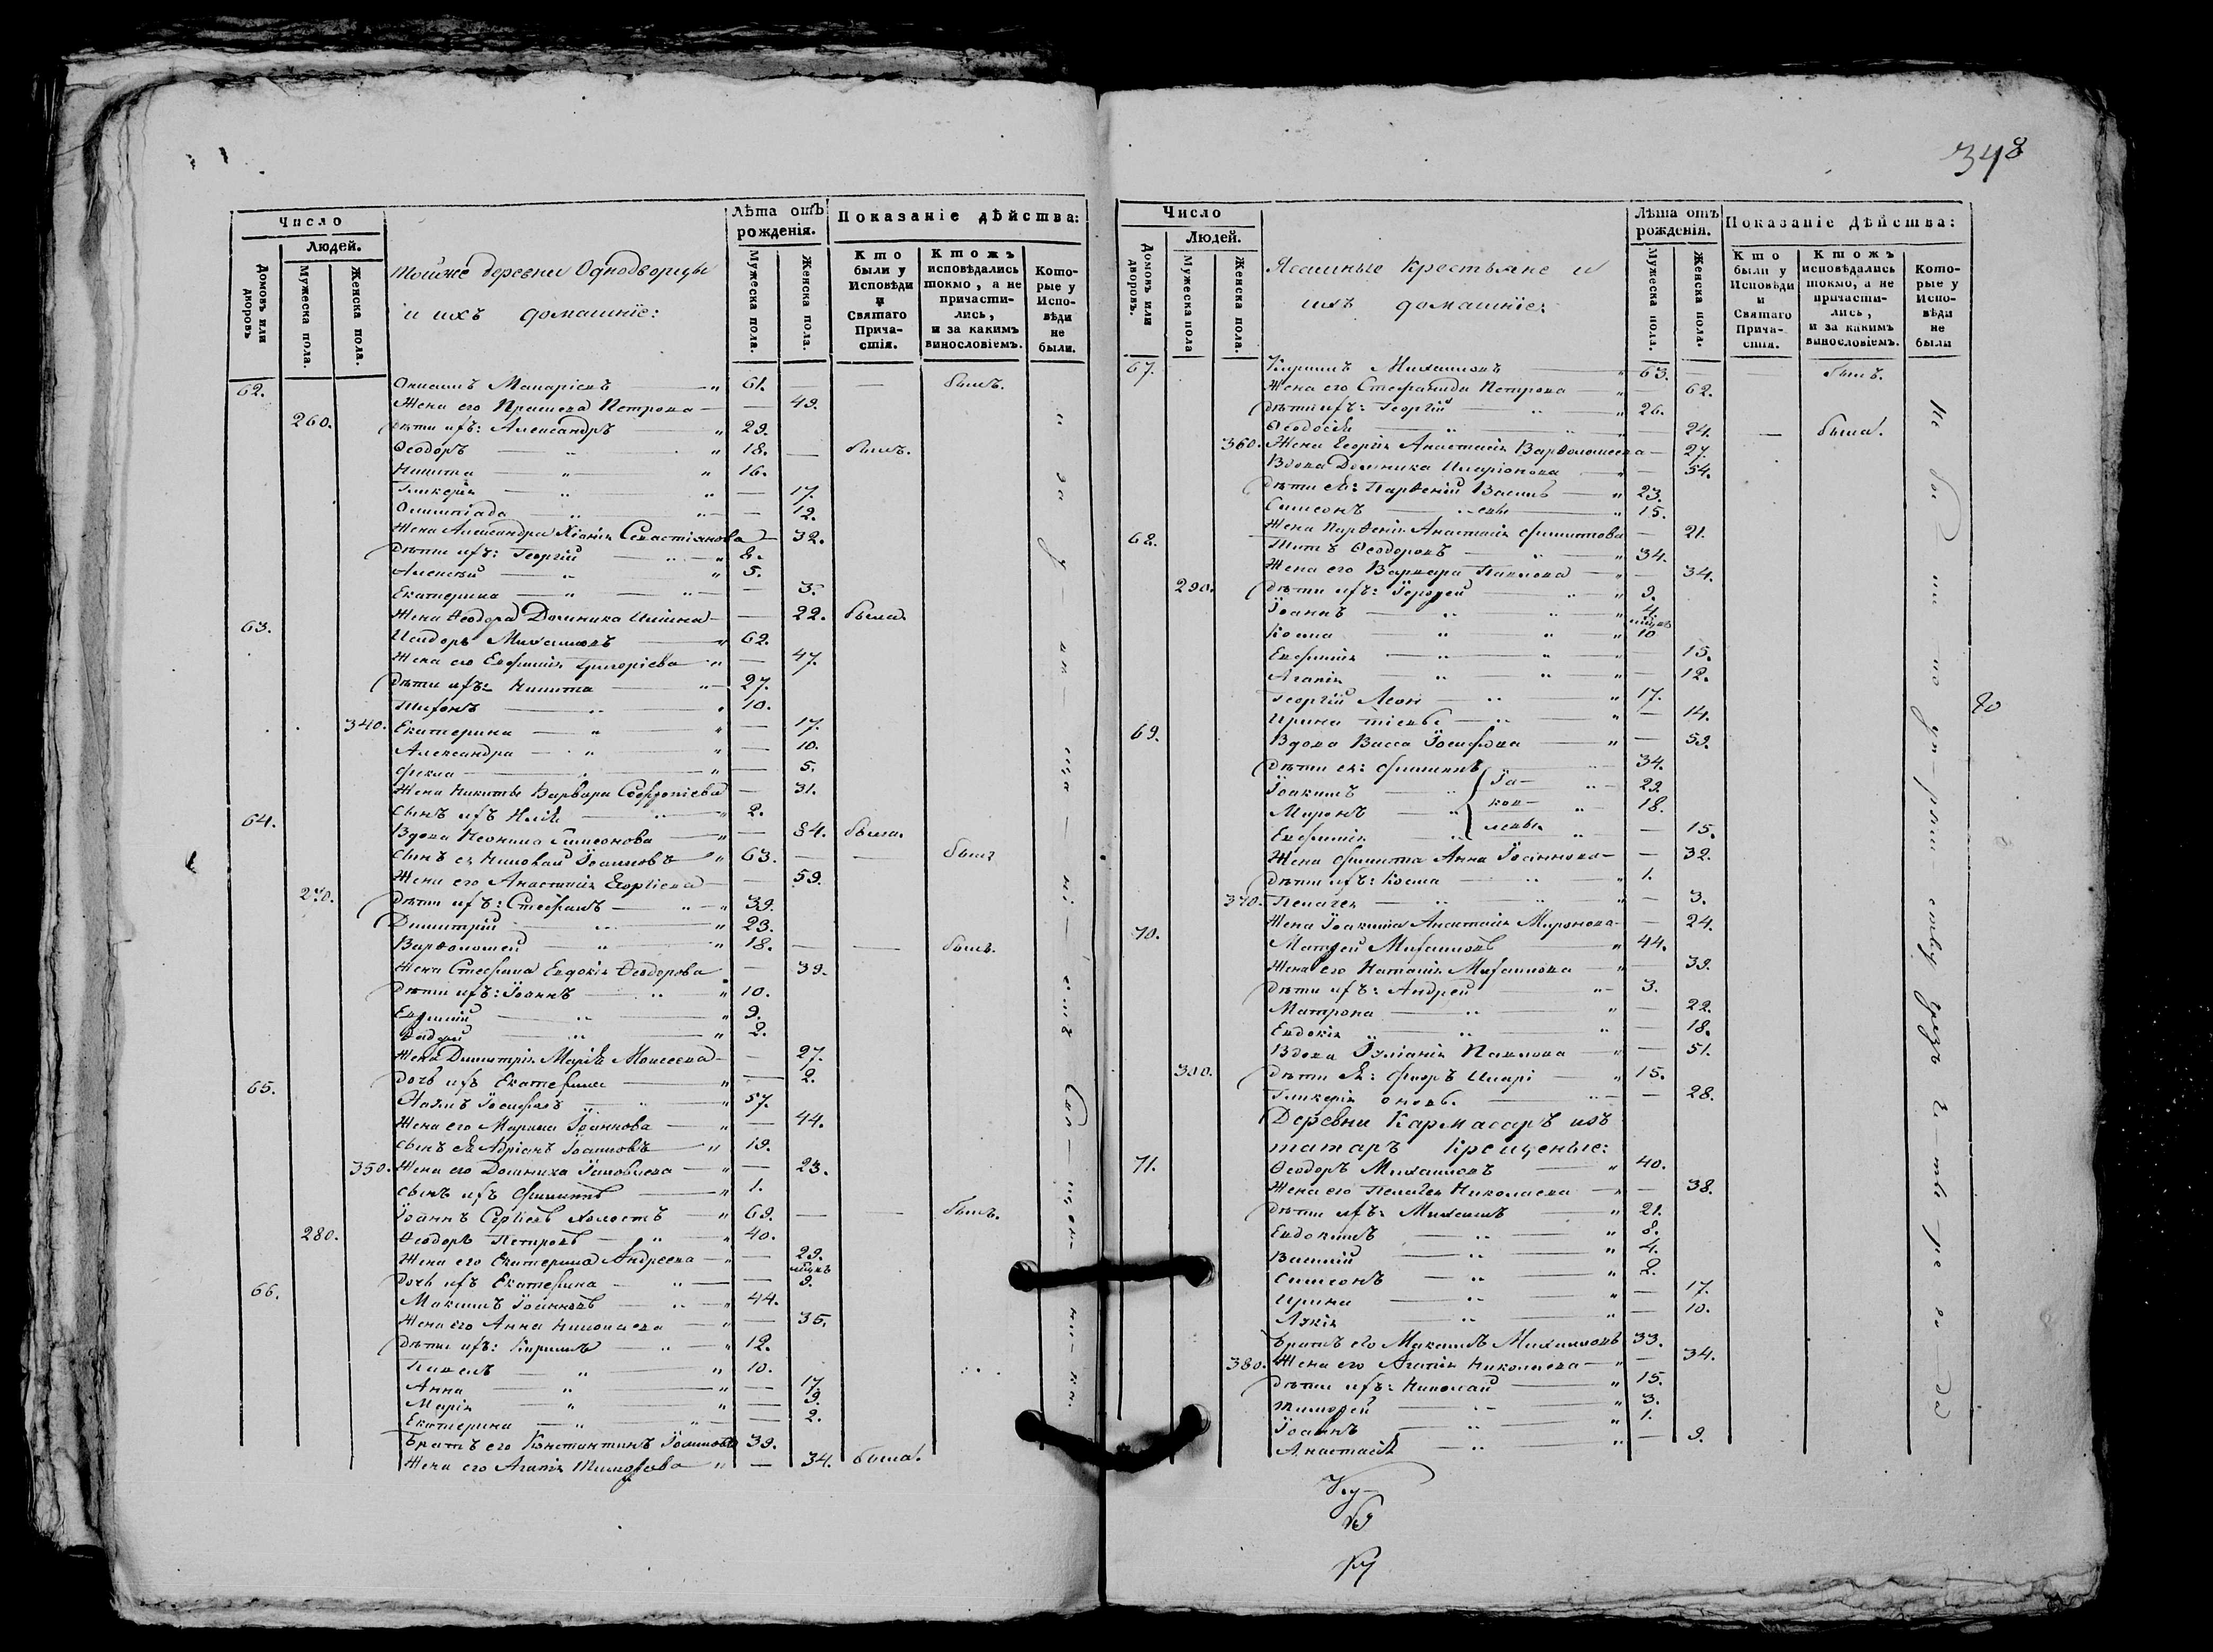 348
Число
Людей.
Домовъ или дворовъ
Мужеска пола.
Женска пола.
Тойже деревни Однодворцы
и ихъ домашнiе:
Лѣта отъ рожденiя.
Мужеска пола.
Женска пола.
Показанiе дѣйства:
Кто были у Исповѣди и Святаго Причастiя.
Ктожъ исповѣдались токмо, а не причастились, и за какимъ винословiемъ.
Которые у Исповѣди не были.
62. 61. — — былъ.
Жена его Петрова — — 49.
260. Дѣти ихъ: Александръ — " 29.
Ѳеодоръ — " 18. — былъ.
Никита — " 16.
Гликерiя — " — 17.
Олимпiада — " — 12.
Жена Александра Ксенiя Севастiянова — 32.
Дѣти ихъ: Георгiй — " 8.
Алексѣй — " 5.
Екатерина — " — 3.
Жена Ѳеодора Домника — — 22. была.
63. Исидоръ Михаиловъ — " 62.
Жена его Евфимiя Григорiева " — 47.
Дѣти ихъ: Никита — " 27.
Тихонъ — " 10.
340. Екатерина — " — 17.
Александра — " — 10.
Фекла — " — 5.
Жена Никиты Варвара Софронiева — 31.
Сынъ ихъ Илiя — " 2.
64. Вдова Неонила Симеонова — " — 84. была.
Сынъ ея Николай Iоанновъ " 63. — — былъ
Жена его Анастасiя — — 59.
270. Дѣти ихъ: Стефанъ — " 39.
Димитрiй — " 23.
Варѳоломей — " 18. — — былъ.
Жена Стефана Евдокiя Ѳеодорова — 39.
Дѣти ихъ: Iоаннъ — " 10.
Евфимiй — " 9.
" 2.
Жена Димитрiя Марiя Моисеева — — 27.
Дочь ихъ Екатерина — " — 2.
65. Iосифовъ — " 57.
Жена его Марина Iоаннова — " — 44.
Сынъ ея Адрiанъ Iоанновъ — " 19.
350. Жена его Домника Iаковлева — " — 23.
Сынъ ихъ Филиппъ — " 1.
Iоаннъ Сергiевъ холостъ — " 69. — — былъ.
280. Ѳеодоръ Петровъ — " 40.
Жена его Екатерина Андреева — " — 29.
Дочь ихъ Екатерина — " — мѣсяцъ 9.
66. Максимъ Iоанновъ — " 44.
Жена его Анна Николаева — " — 35.
Дѣти ихъ: Кирилъ — " 12.
Павелъ — " 10.
Анна — " — 17.
Марiя — " — 9.
Екатерина — " — 2.
Братъ его Константинъ Iоанновъ 39.
Жена его Агапiя Тимофѣева " — 34. была.
Число
Людей.
Домовъ или дворовъ.
Мужеска пола
Женска пола.
Ясашные крестьяне и
ихъ домашнiе:
Лѣта отъ рожденiя.
Мужеска пола.
Женска пола.
Показанiе дѣйства:
Кто были у Исповѣди и Святаго Причастiя.
Ктожъ исповѣдались токмо, а не причастились, и за какимъ винословiемъ.
Которые у Исповѣди не были
67. Кирилъ Михаиловъ — " 63. — — былъ.
Жена его Стефанида Петрова — " — 62.
Дѣти ихъ: Георгiй — " 26.
Ѳеодосiя — " — 24. — была.
360. Жена Георгiя Анастасiя Варѳоломеева — 27.
Вдова Домника Иларiонова — " — 54.
Дѣти ея: Парѳенiй Василь — " 23.
Симеонъ — евы " 15.
Жена Парѳенiя Анастасiя Филиппова — 21.
68. Титъ Ѳеодоровъ — " 34.
Жена его Варвара Павлова — " — 34.
290. Дѣти ихъ: — " 9.
Iоаннъ — " 4.
Косма — " мѣсяцъ 10
Евфимiя — " — 15.
Агапiя — " — 12.
Георгiй Леон — " 17.
Ирина тiевы — " — 14.
69. Вдова Васса Iосифова — " — 59.
Дѣти ея: Филиппъ Iа- 34.
Iоакимъ — ков- " 29.
Миронъ — левы " 18.
Евфимiя — " — 15.
Жена Филиппа Анна Iоаннова — — 32.
Дѣти ихъ: Косма — " 1.
370. Пелагея — " — 3.
Жена Iоакима Анастасiя Миронова — 24.
70. Матѳей Михаиловъ — " 44.
Жена его Наталiя Михаилова — " — 39.
Дѣти ихъ: Андрей — " 3.
Матрона — " — 22.
Евдокiя — " — 18.
Вдова Iулiанiя Павлова — " — 51.
300. Дѣти ея: Флоръ Илари — " 15.
Гликерiя оновы. — " — 28.
Деревни Кармасаръ изъ
татаръ крещеные:
71. Ѳеодоръ Михаиловъ — " 40.
Жена его Пелагея Николаева — " — 38.
Дѣти ихъ: Михаилъ — " 21.
Евдокимъ — " 8.
Василiй — " 4.
Симеонъ — " 2.
Ирина — " — 17.
Лукiя — " — 10.
Братъ его Максимъ Михаиловъ 33.
380. Жена его Агапiя Николаева — " — 34.
Дѣти ихъ: Николай — " 15.
Тимоѳей — " 3.
Iоаннъ — " 1.
Анастасiя — " — 9.